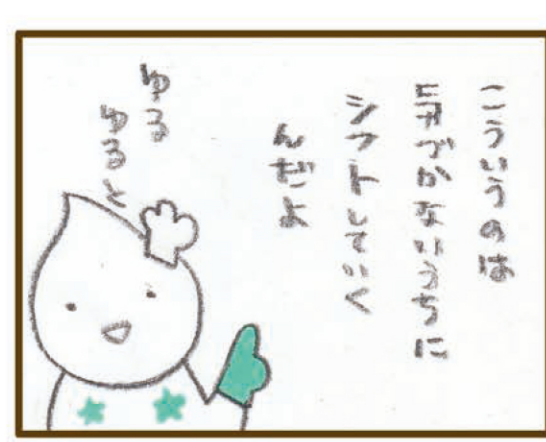 こういうのは
気づかないうちに
シフトしていく
んだよ
ゆる
ゆると